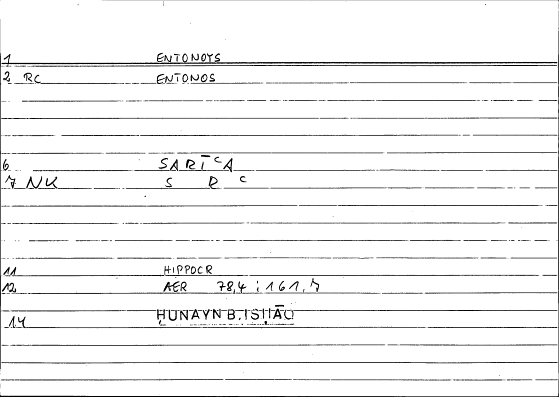 1 ENTONOYS
2 RC ENTONOS
6 SARĪʿA
7 NK S R ʿ
11 HIPPOCR
12 AER 78,4 ; 161,7
14 ḤUNAYN B. ISḤĀQ